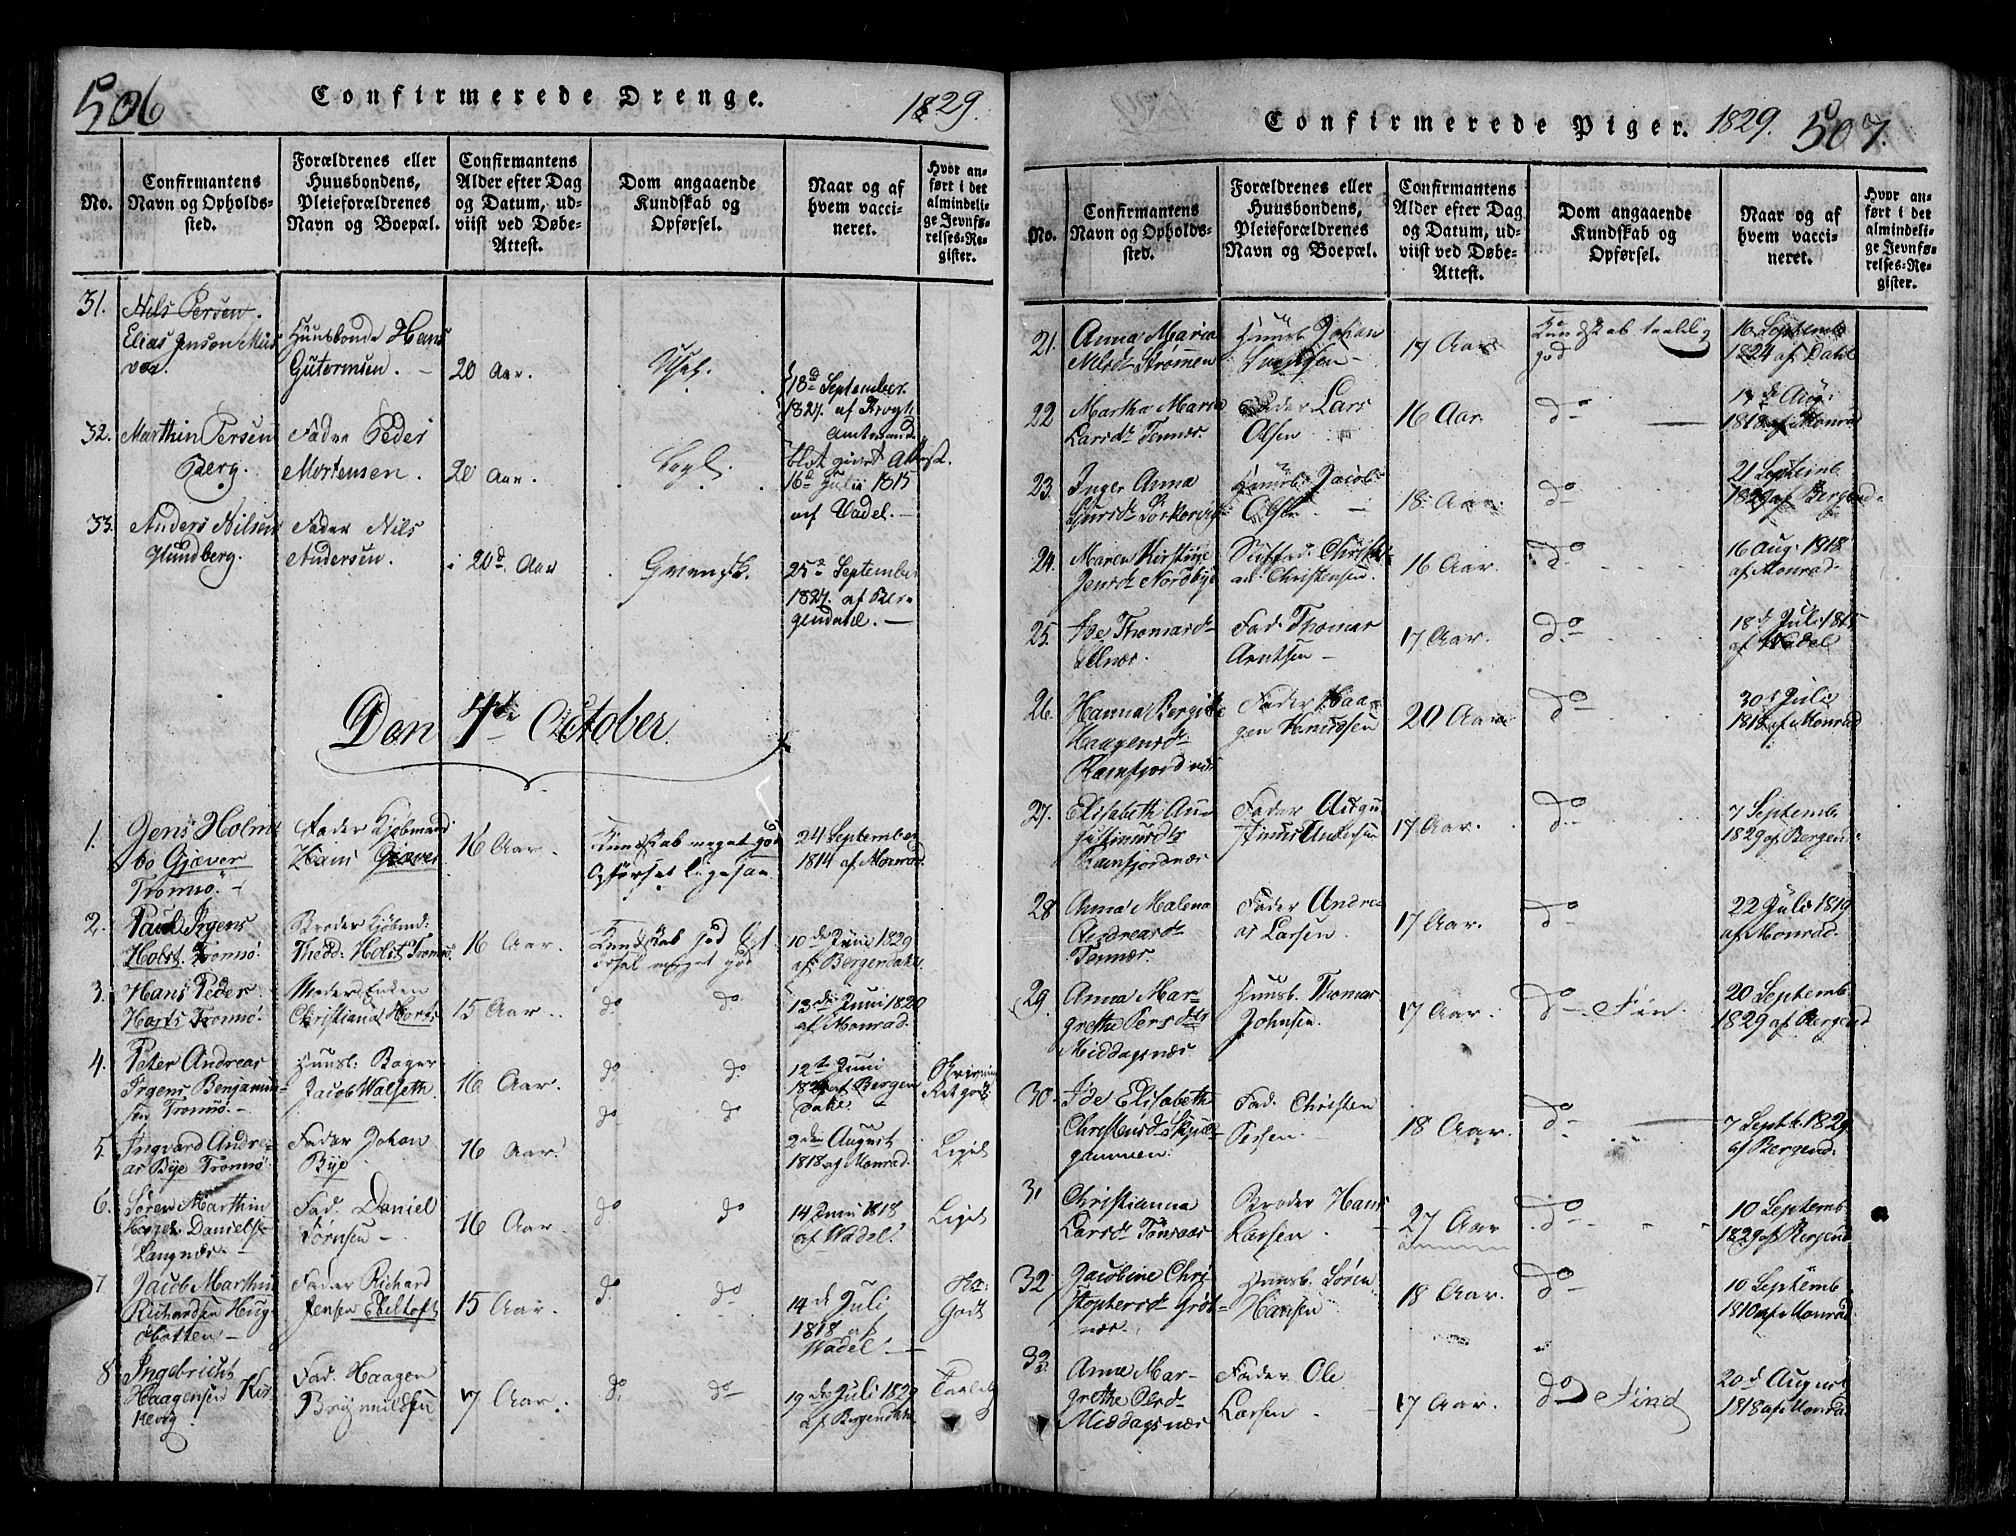 506
Confirmerede Drenge.
1829.
No.
Confirmantens
Navn og Opholds-
sted.
Forældrenes eller
Huusbondens,
Pleieforældrenes
Navn og Boepæl.
Confirmantens
Alder efter Dag
og Datum, ud-
viist ved Døbe-
Attest.
Dom angaaende
Kundskab og
Opførsel.
Naar og af
hvem vacci-
neret.
Hvor an-
ført i det
almindeli-
ge Jevnfø-
relses-Re-
gister.
31.
Nils Persen.
Elias Jenson
Huusbonde Hans
Gutormsen.
20 Aar.
18de September
1827. af Krogh
Amtmand
32.
Marthin Persen
Berg.
Fader Peder
Mortensen.
20 Aar.
blot givet Attest.
16de Julii 1815
af Wadel.
33.
Anders Nilsen
Hundberg.
Fader Nils
Andersen.
i 20d. Aar
25de September
1827. af Ber-
gendahl.
Den 4de October.
1.
Jens Holm-
bo Gjæver
Tromsø.
Fader Kjøbmand
Hans Gjæver
16 Aar.
Kundskab meget god
Opførsel ligesaa
24 September
1814 af Monrad.
2.
Paul Irgens
Holst. Tromsø.
Broder Kjøbmd:
Thodd: Holst Tromsø
16 Aar.
Kundskab god Op-
førsel meget god
10de Juni 1829
af Bergendahl
3.
Hans Peder
Harts Tromsø.
Moder Enken
Christiana Harts
15 Aar.
do do
13de Juni 1820
af Monrad.
4.
Peter Andreas
Irgens Benjamin-
sen Tromsø.
Huusb. Bager
Jacob Walseth
16 Aar.
do do
12te Juni
af Bergen
dahl.
do do
5.
Ingvard Andre-
as Bye Tromsø.
Fader Johan
Bye
16 Aar.
2den August
1818 af Monrad.
Ligel
6.
Søren Marthin
Danielse
Langnæs.
Fad. Daniel
Sørnsen
16 Aar.
do do
14 Juni 1818
af Wadel.
Ligel
7
Jacob Marthin
Richardsen
botten
Fader Richard
Jensen Ebeltoft
15 Aar.
do do
14de Juli
1818 af
Wadel.
Godt
8
Ingebricht
Haagensen
Fad. Haagen
Brynnildsen
17 Aar.
do do
19de Juli 1829
af Bergendahl
Taalelig
Confirmerede Piger.
1829.
507.
No.
Confirmantens
Navn og Opholds-
sted.
Forældrenes eller
Huusbondens,
Pleieforældrenes
Navn og Boepæl.
Confirmantens
Alder efter Dag
og Datum, ud-
viist ved Døbe-
Attest.
Dom angaaende
Kundskab og
Opførsel.
Naar og af
hvem vacci-
neret.
Hvor an-
ført i det
almindeli-
ge Jevnfø-
relses-Re-
gister.
21.
Anna Maria
Strømen
Huusb. Johan
17 Aar
Kundskab taalelig
god
16 Septemb
1824 af Dahl
22
Martha Maria
Larsdr Tennæs.
Fader Lars
Olsen
16 Aar.
do
13de Aug:
1818 af Monrad
23.
Inger Anna
Huusb. Jacob
Olsen
18 Aar
do
21 Septemb.
1829 af Bergend
24.
Maren Kirstine
Jensdr Nordbye
Stiffad. Christi-
an Christensen.
16 Aar.
do
16 Aug. 1818
af Monrad.
25.
Ide Thomasdr
Selnæs.
Fad. Thomas
Arntsen
17 Aar.
do
18de Juli 1815
af Wadel
26.
Hanna Bergitte
Haagensdr
Ramfjordnæs
Fader Haa-
gen
20 Aar
do
30te Juli
1818 af Monrad
27.
Elisabeth Au-
gustinusdr
Ramfjordnæs
Fader Augu-
stinus
17 Aar.
do
7 Septemb
1829 af Bergend
28
Anna Malena
Andreasdr
Tennæs.
Fader Andre-
as Larsen.
17 Aar.
do
22 Juli 1819
af Monrad.
29
Anna Mar-
grethe Persdtr
Middagsnæs
Huusb. Thomas
Johnsen.
17 Aar.
do Fin.
20 Septemb
1829 af Bergend
30.
Ide Elisabeth
gammen.
Fad. Christen
Persen
18 Aar.
do
7 Septb. 1829
af Bergend.
31
Christianna
Larsdr Tønsaas
Broder Hans
Larsen.
27 Aar
do
10 Septemb.
1829 af Bergend
32
Jacobine Chri-
stophersdr Grøt-
næs.
Huusb. Sören
Hansen
18 Aar.
do
10 Septemb.
1810 af Monrad
33
Anne Mar-
grethe Olsdr
Middagsnæs
Fader Ole
Larsen.
17 Aar.
do Find
20de August
1818 af Monrad